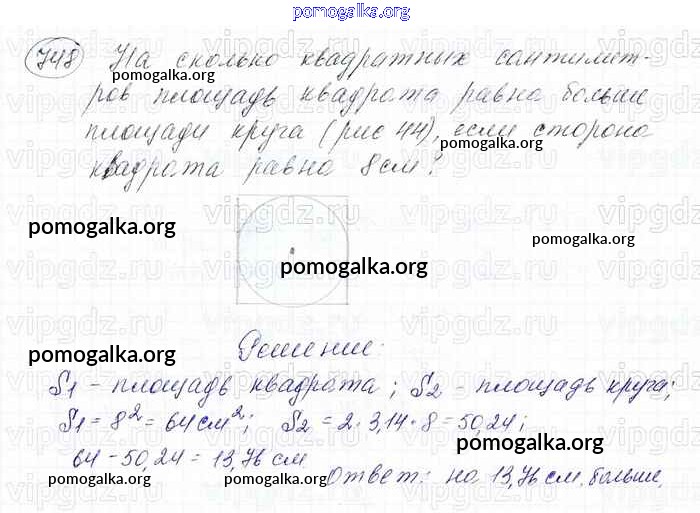 pomogalka.org
748 На сколько квадратных сантимет-
pomogalka.org
ров площадь квадрата равна больше
площади круга (рис 44), если сторона
pomogalka.org
квадрата равна 8 см?
pomogalka.org
pomogalka.org
pomogalka.org
Решение:
pomogalka.org
S1 - площадь квадрата; S2 - площадь круга;
S1 = 8² = 64 см²; S2 = 2 · 3,14 · 8 = 50,24;
pomogalka.org
64 - 50,24 = 13,76 см
Ответ: на 13,76 см. больше.
pomogalka.org
vipgdz.ru